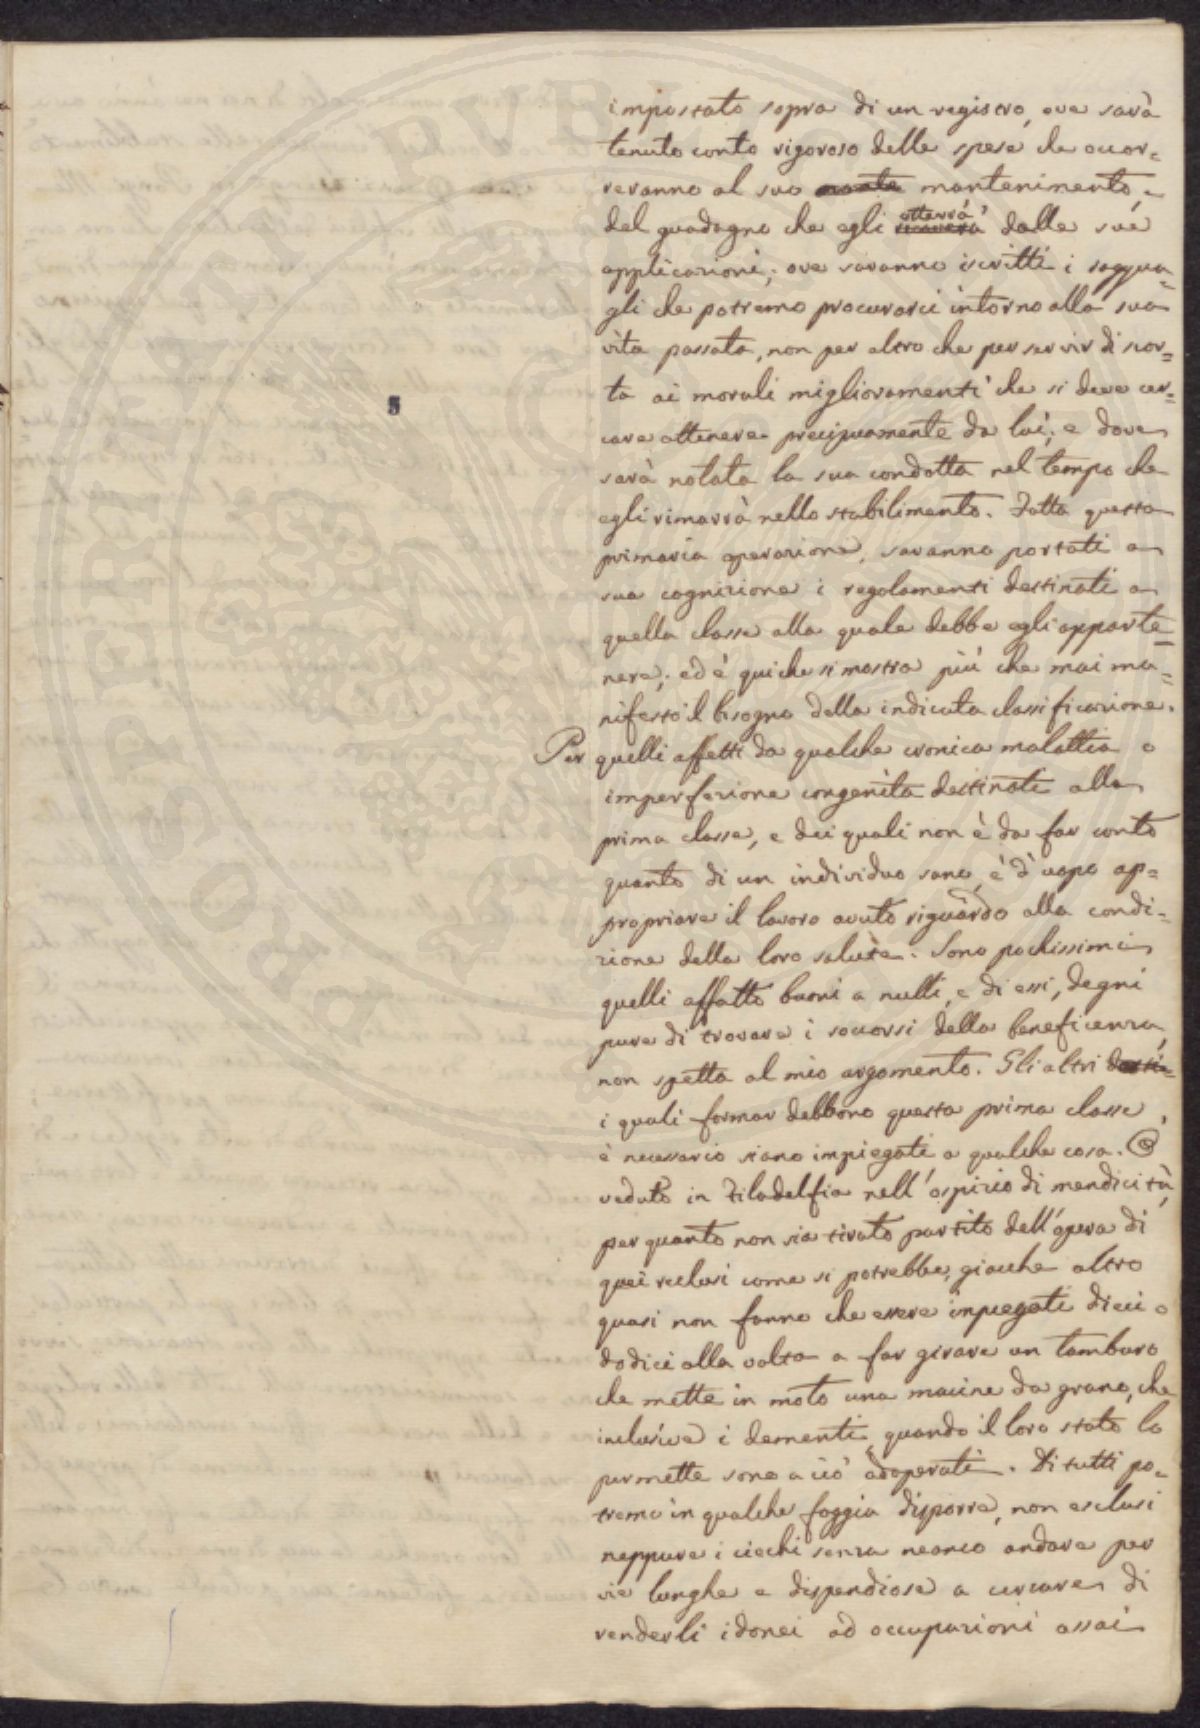 impostato sopra di un registro, ove sarà
tenuto conto rigoroso delle spese che occor=
reranno al suo mantenimento, e
del guadagno che egli otterrà dalle sue
applicazioni; ove saranno iscritti i raggua=
gli che potremo procurarci intorno alla sua
vita passata, non per altro che per servir di scor=
ta ai morali miglioramenti che si deve cer=
care ottenere precipuamente da lui; e dove
sarà notata la sua condotta nel tempo che
egli rimarrà nello stabilimento. Fatta questa
primaria operazione, saranno portati a
sua cognizione i regolamenti destinati a
quella classe alla quale debbe egli apparte=
nere; ed è qui che si mostra più che mai ma=
nifesto il bisogno della indicata classificazione.
Per quelli affetti da qualche cronica malattia o
imperfezione congenita destinati alla
prima classe, e dei quali non è da far conto
quanto di un individuo sano, è d'uopo ap=
propriare il lavoro avuto riguardo alla condi=
zione della loro salute. Sono pochissimi
quelli affatto buoni a nulli, e di essi, degni
pure di trovare i soccorsi della beneficenza,
non spetta al mio argomento. Gli altri
i quali formar debbono questa prima classe,
è necessario siano impiegati a qualche cosa. Ò
veduto in Filadelfia nell'ospizio di mendicità,
per quanto non sia tirato partito dell'opera di
quei reclusi come si potrebbe, giacchè altro
quasi non fanno che essere impiegati dieci o
dodici alla volta a far girare un tamburo
che mette in moto una macine da grano, che
inclusive i dementi, quando il loro stato lo
permette sono a ciò adoperati. Di tutti po=
tremo in qualche foggia disporre, non esclusi
neppure i ciechi senza neanco andare per
vie lunghe e dispendiose a cercare di
renderli idonei ad occupazioni assai
5